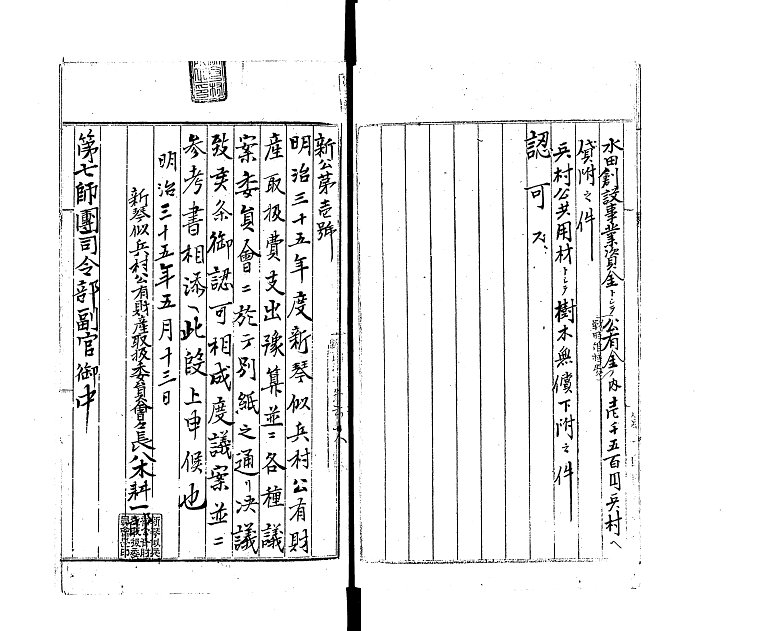 水田創設事業資金トシテ公有金ノ内壱千五百円兵村ヘ
貸附之件
兵村公共用材トシテ樹木無償下附之件
認可ス
新公第壱號
明治三十五年度新琴似兵村公有財
産取扱費支出豫算並ニ各種議
案委員會ニ於テ別紙之通リ决議
致候条御認可相成度議案並ニ
参考書相添ヘ此段上申候也
明治三十五年五月十三日
新琴似兵村公有財産取扱委員會々長八木耕一郎
第七師團司令部副官御中